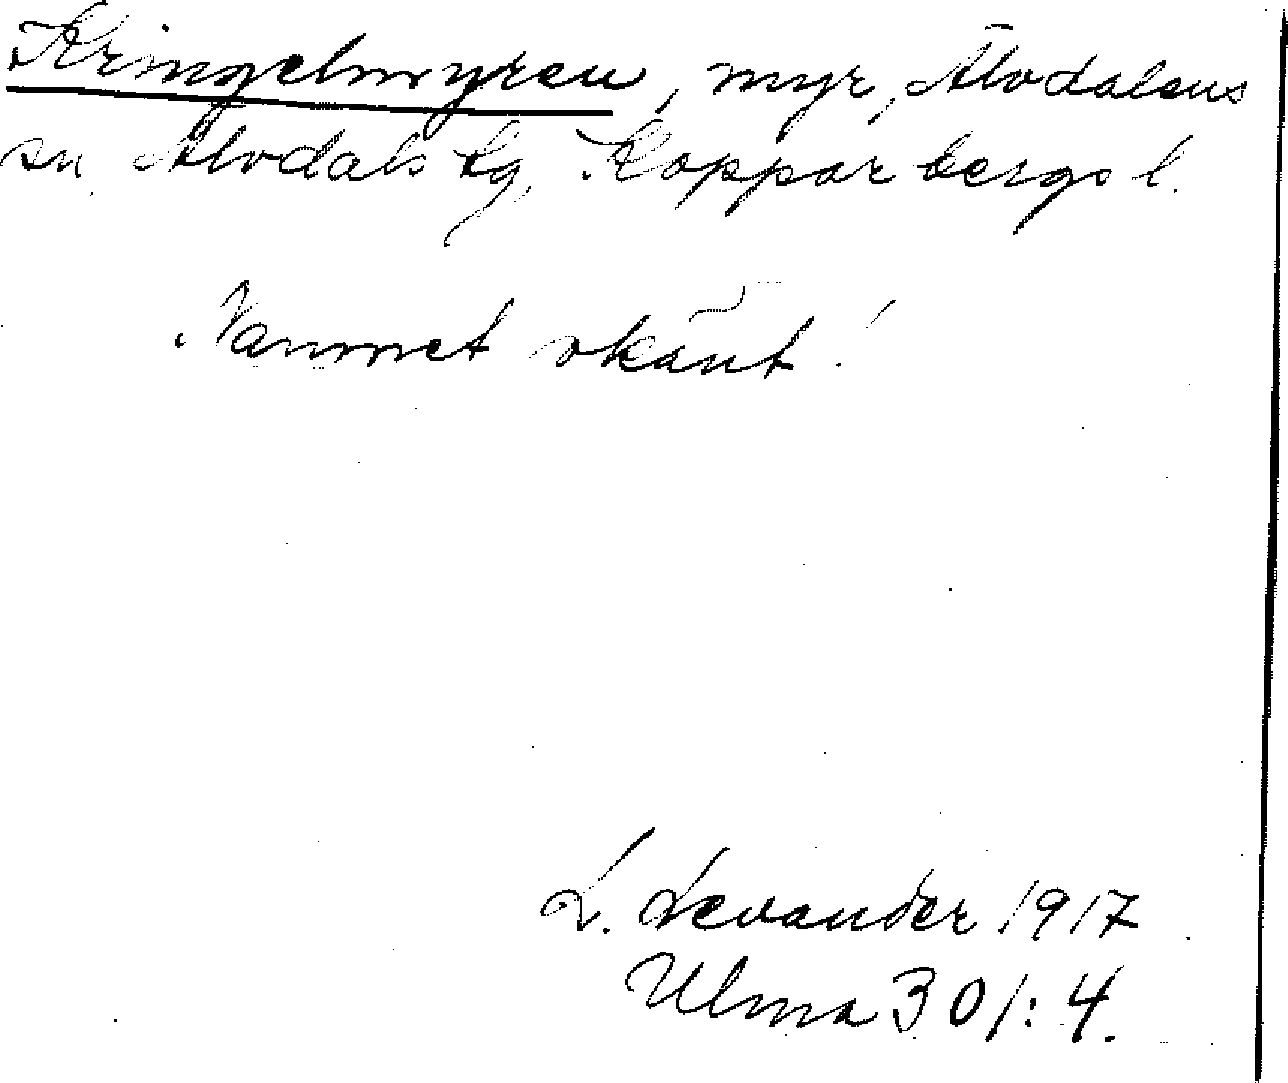 Kringelmyren, myr, Älvdalens
sn, Älvdals tg, Kopparbergs l.
Namnet okänt!
L. Levander 1917
Ulma 301:4.